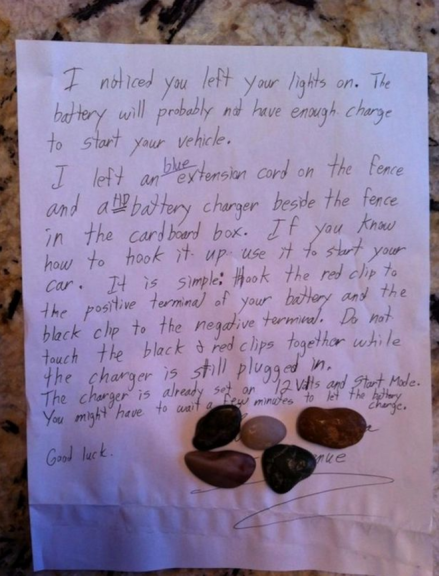 I noticed you left your lights on. The
battery will probably not have enough charge
to start your vehicle.
I left an blue extension cord on the fence
and a battery charger beside the fence
in the cardboard box. If you know
how to hook it up use it to start your
car. It is simple: Hook the red clip to
the positive terminal of your battery and the
black clip to the negative terminal. Do not
touch the black & red clips together while
the charger is still plugged in.
The charger is already set on 12 Volts and Start Mode.
You might have to wait a few minutes to let the battery
charge.
Good luck.